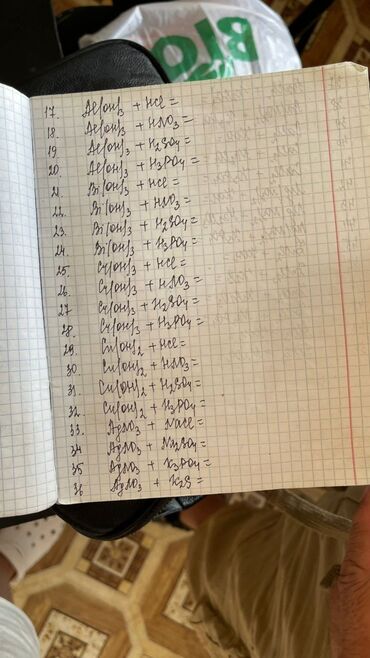 BIO
17. Al(OH)3 + HCl =
18. Al(OH)3 + HNO3 =
19 Al(OH)3 + H2SO4 =
20. Al(OH)3 + H3PO4 =
21 Bi(OH)3 + HCl =
22. Bi(OH)3 + HNO3 =
23. Bi(OH)3 + H2SO4 =
24. Bi(OH)3 + H3PO4 =
25. Cr(OH)3 + HCl =
26. Cr(OH)3 + HNO3 =
27 Cr(OH)3 + H2SO4 =
28. Cr(OH)3 + H3PO4 =
29. Cu(OH)2 + HCl =
30. Cu(OH)2 + HNO3 =
31. Cu(OH)2 + H2SO4 =
32. Cu(OH)2 + H3PO4 =
33. AgNO3 + NaCl =
34 AgNO3 + Na2SO4 =
35 AgNO3 + K3PO4 =
36 AgNO3 + K2S =